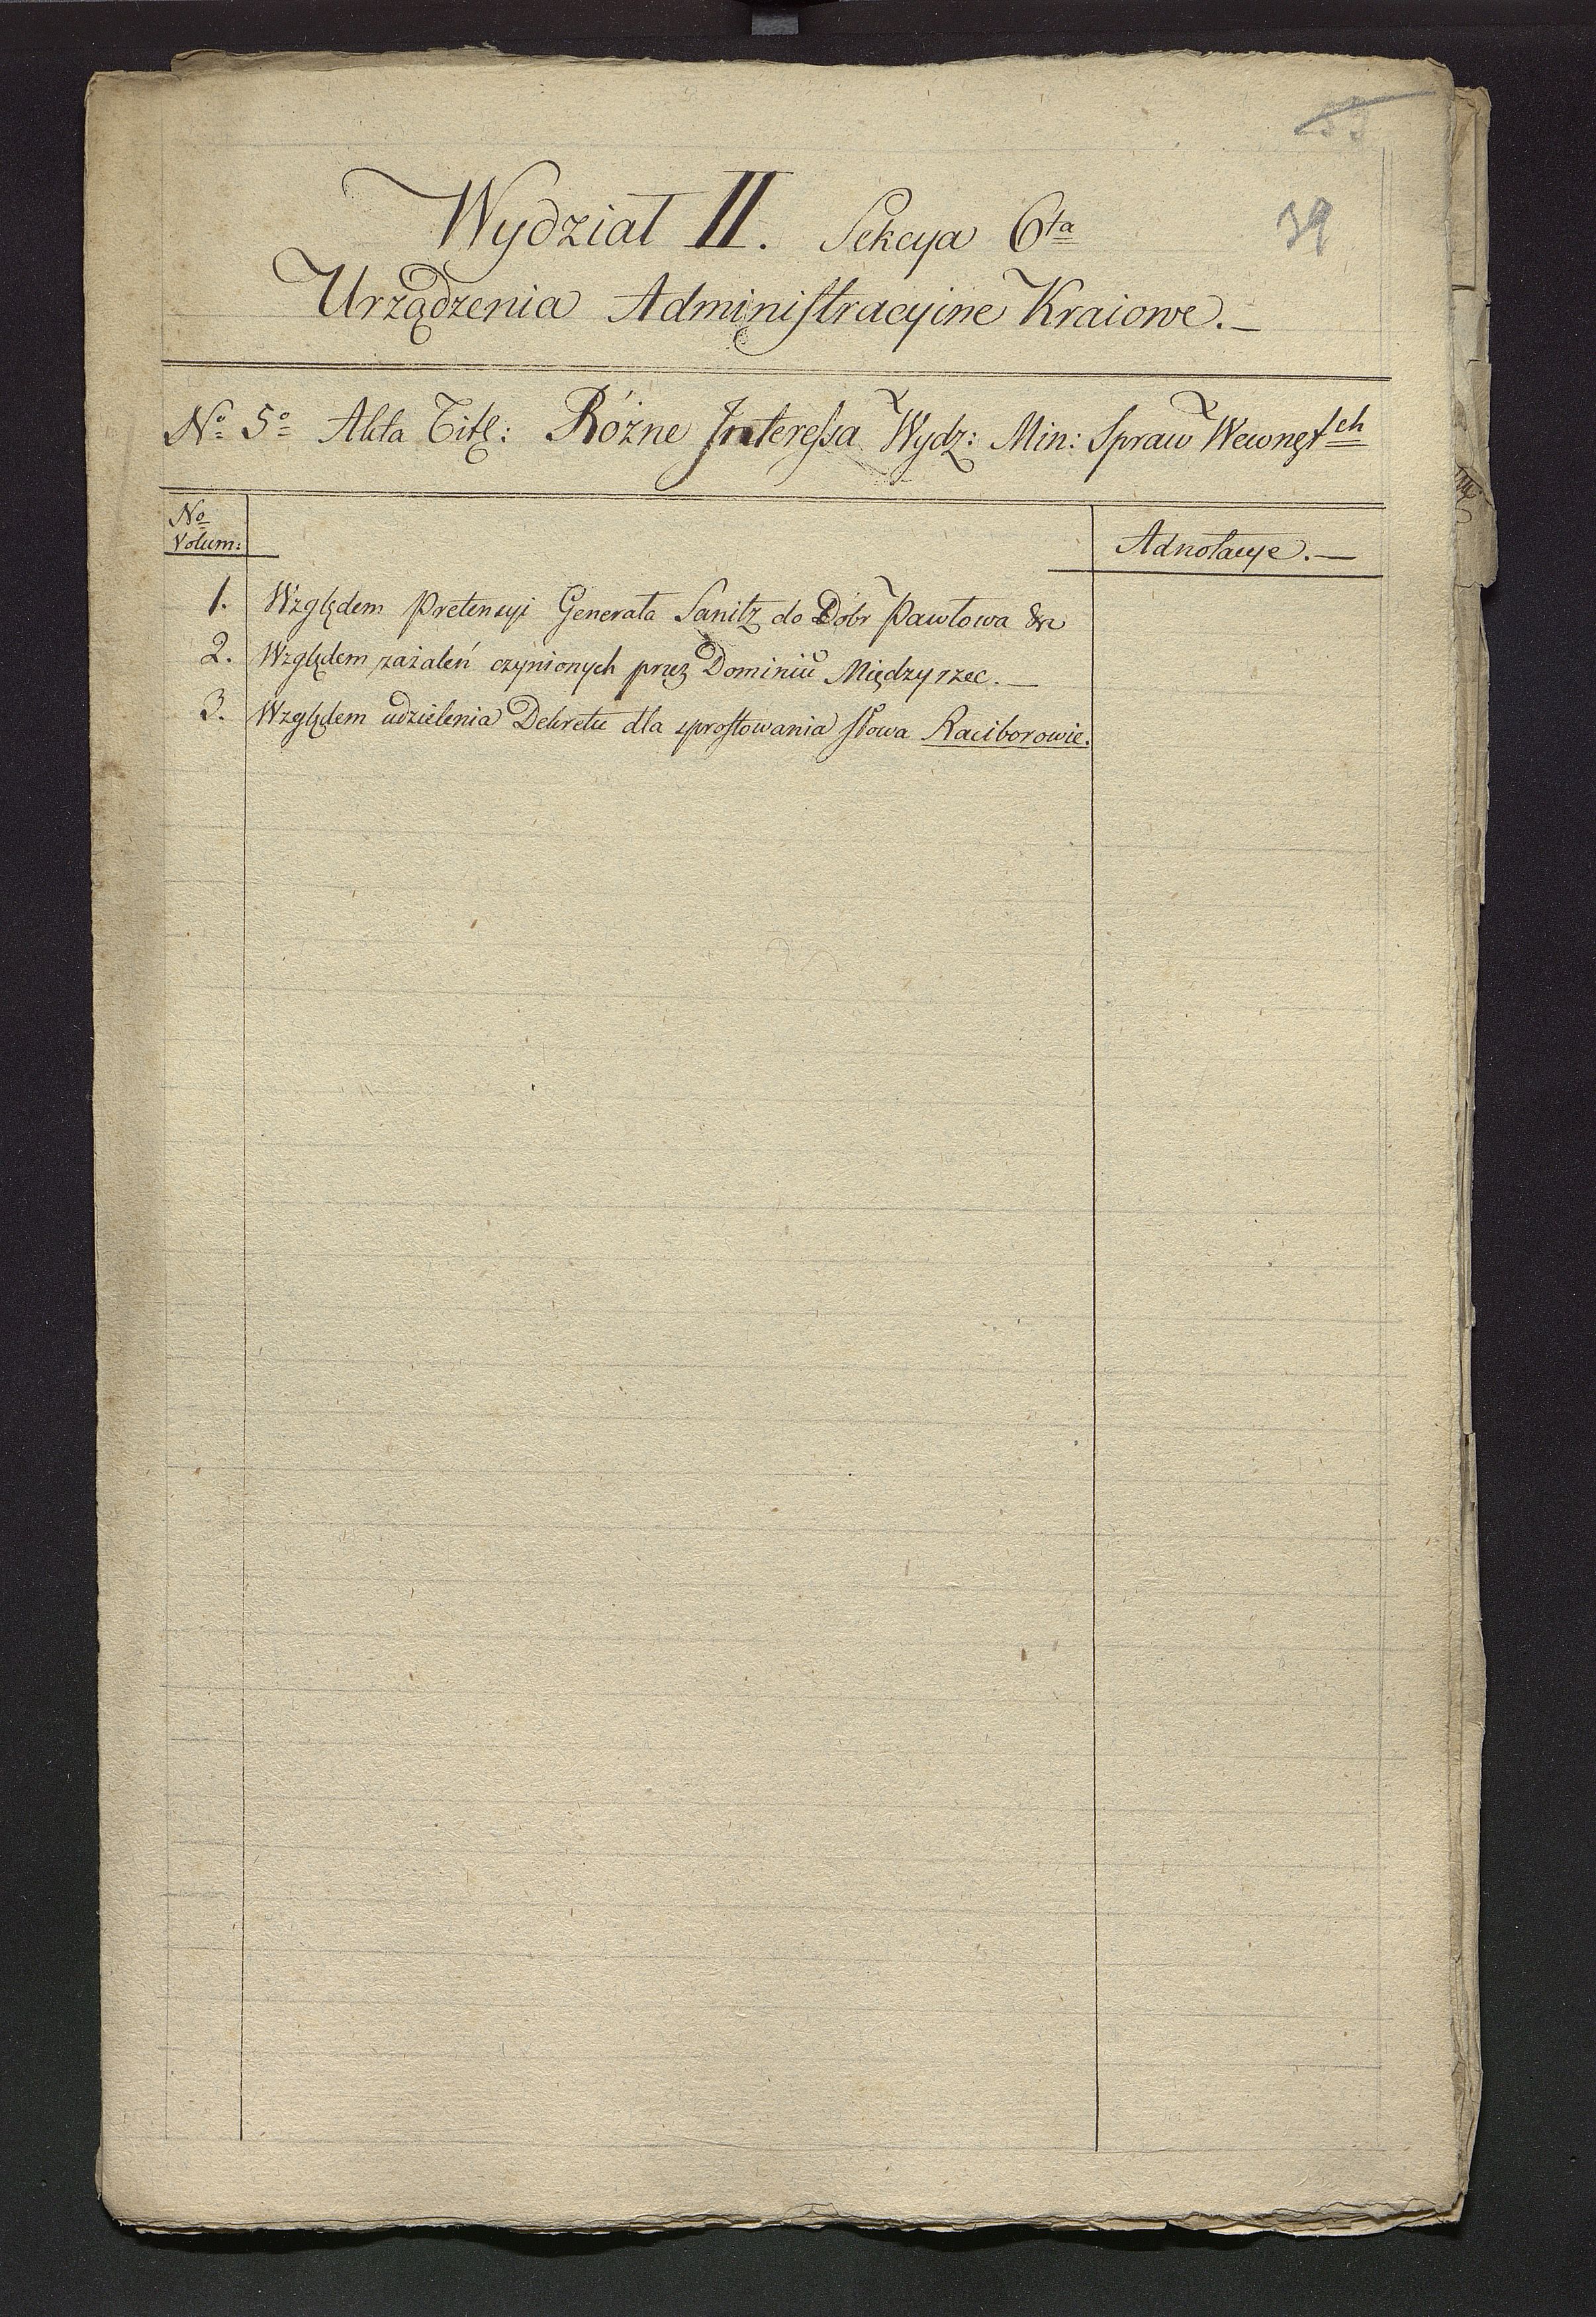 53
39
Wydział II. Sekcya 6ta
Urządzenia Administracyine Kraiowe.—
No 5o Akta Titl: Różne Interessa Wydz: Min: Spraw Wewnętch
No
Volum:
Adnotacye.—
1. Względem Pretensyi Generała Sanitz do Dóbr Pawłowa &a
2. Względem zażaleń czynionych przez Dominiū Międzyrzec.—
3. Względem udzielenia Dekretu dla sprostowania słowa Raciborowic.